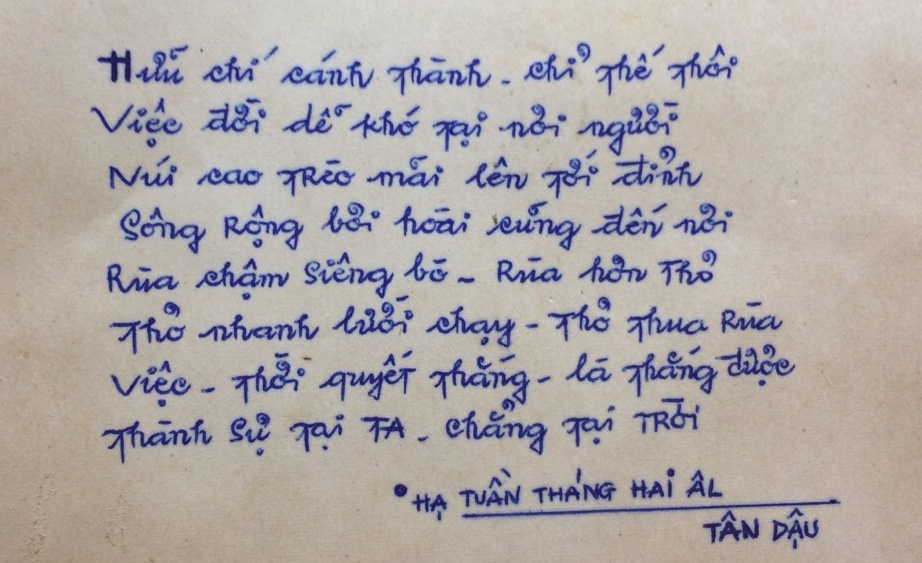 Hữu chí cánh thành - chỉ thế thôi
Việc đời dễ khó tại nơi người
Núi cao trèo mãi lên tới đỉnh
Sông rộng bơi hoài cũng đến nơi
Rùa chậm siêng bò - Rùa hơn Thỏ
Thỏ nhanh lười chạy - Thỏ thua Rùa
Việc - thời quyết thắng - là thắng được
Thành sự tại TA - chẳng tại TRỜI
• HẠ TUẦN THÁNG HAI ÂL
TÂN DẬU